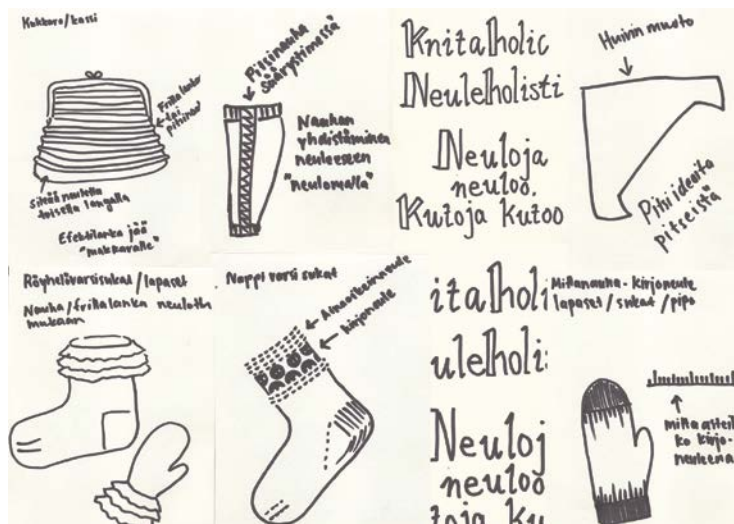 Kukkaro/kassi
Frillalanka
tai
Sileää neuletta
toisella langalla
Efektilanka jää
"makkaralle"
Pitsinauha
säärystimessä
Nauhan
yhdistäminen
neuleeseen
"neulomalla"
Knitaholic
Neuleholisti
Neuloja
neuloo.
Kutoja kutoo
Huivin muoto
Pitsi ideoita
pitseistä
Röyhelövarsisukat/lapaset
Nauha/frillalanka neulottu
mukaan
Nappi varsi sukat
Ainaoikeinneule
kirjoneule
italholi
uleholi
Neuloj
neuloo
toja ku
Mittanauha-kirjoneule
lapaset/sukat/pipo
mitta asteik
ko kirjo-
neuleena